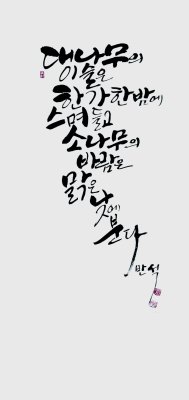 대나무의
이슬은
한가한 밤에
스며들고
소나무의
바람은
맑은
낮에
분다
반석